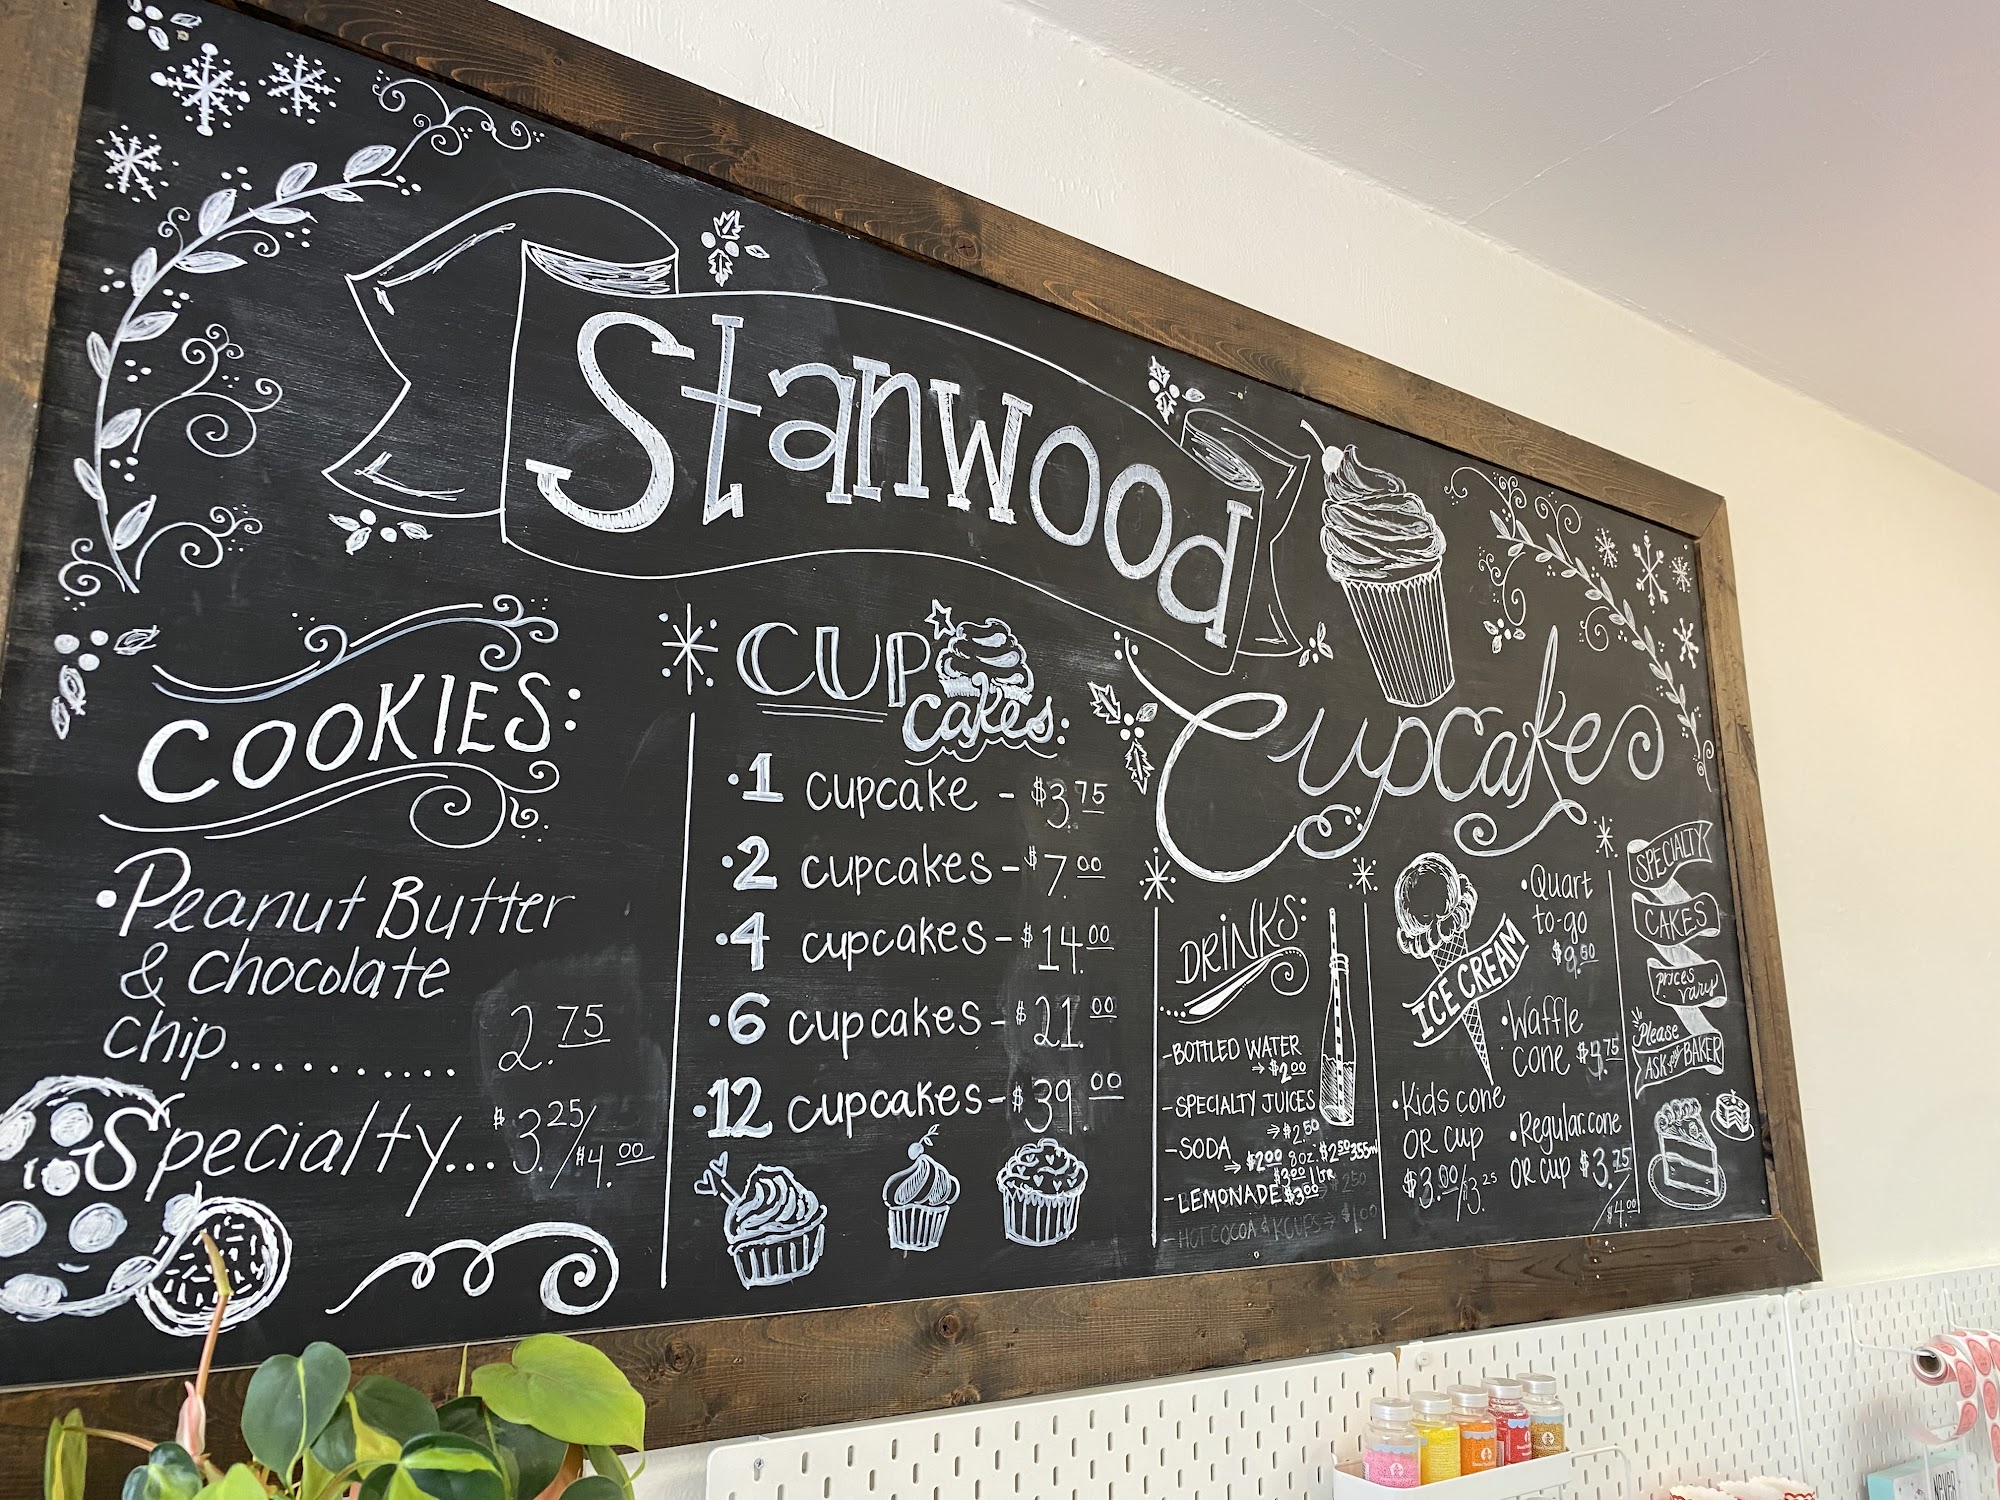 Stanwood
Cupcakes
COOKIES:
•Peanut Butter
& chocolate
chip.......... 2.75
Specialty... $3.25/$4.00
CUP
Cakes:
•1 cupcake - $3.75
•2 cupcakes - $7.00
•4 cupcakes - $14.00
•6 cupcakes - $21.00
•12 cupcakes - $39.00
DRINKS:
-BOTTLED WATER
→ $2.00
-SPECIALTY JUICES
→ $2.50
-SODA
→ $2.00 8oz. $2.50 355ml
$3.00 1 LTR
-LEMONADE $3.00
-HOT COCOA & KCUPS → $1.00
ICE CREAM
•Quart
to-go
$9.50
•Waffle
cone
•Kids cone
OR cup
$3.00/$3.25
•Regular cone
OR cup $3.75
/$4.00
SPECIALTY
CAKES
prices
vary
Please
ASK the BAKER
NEVER